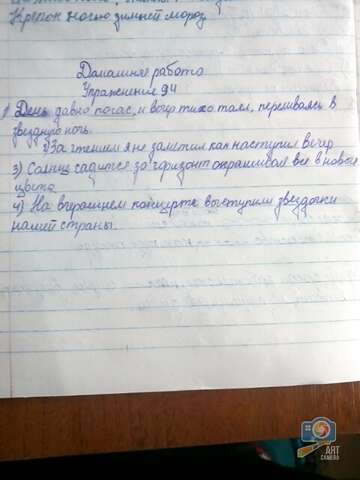 Крепок ночью зимней мороз
Домашнее работа
Упражнения 94
1) День давно погас, и вечер тихо таял, переливаясь в
звездную ночь.
2) За чтением я не заметил как наступил вечер
3) Солнце садится за горизонт окрашивая все в новые
цвета.
4) На вчерашнем концерте выступили звездочки
нашей страны.
ART
CAMERA